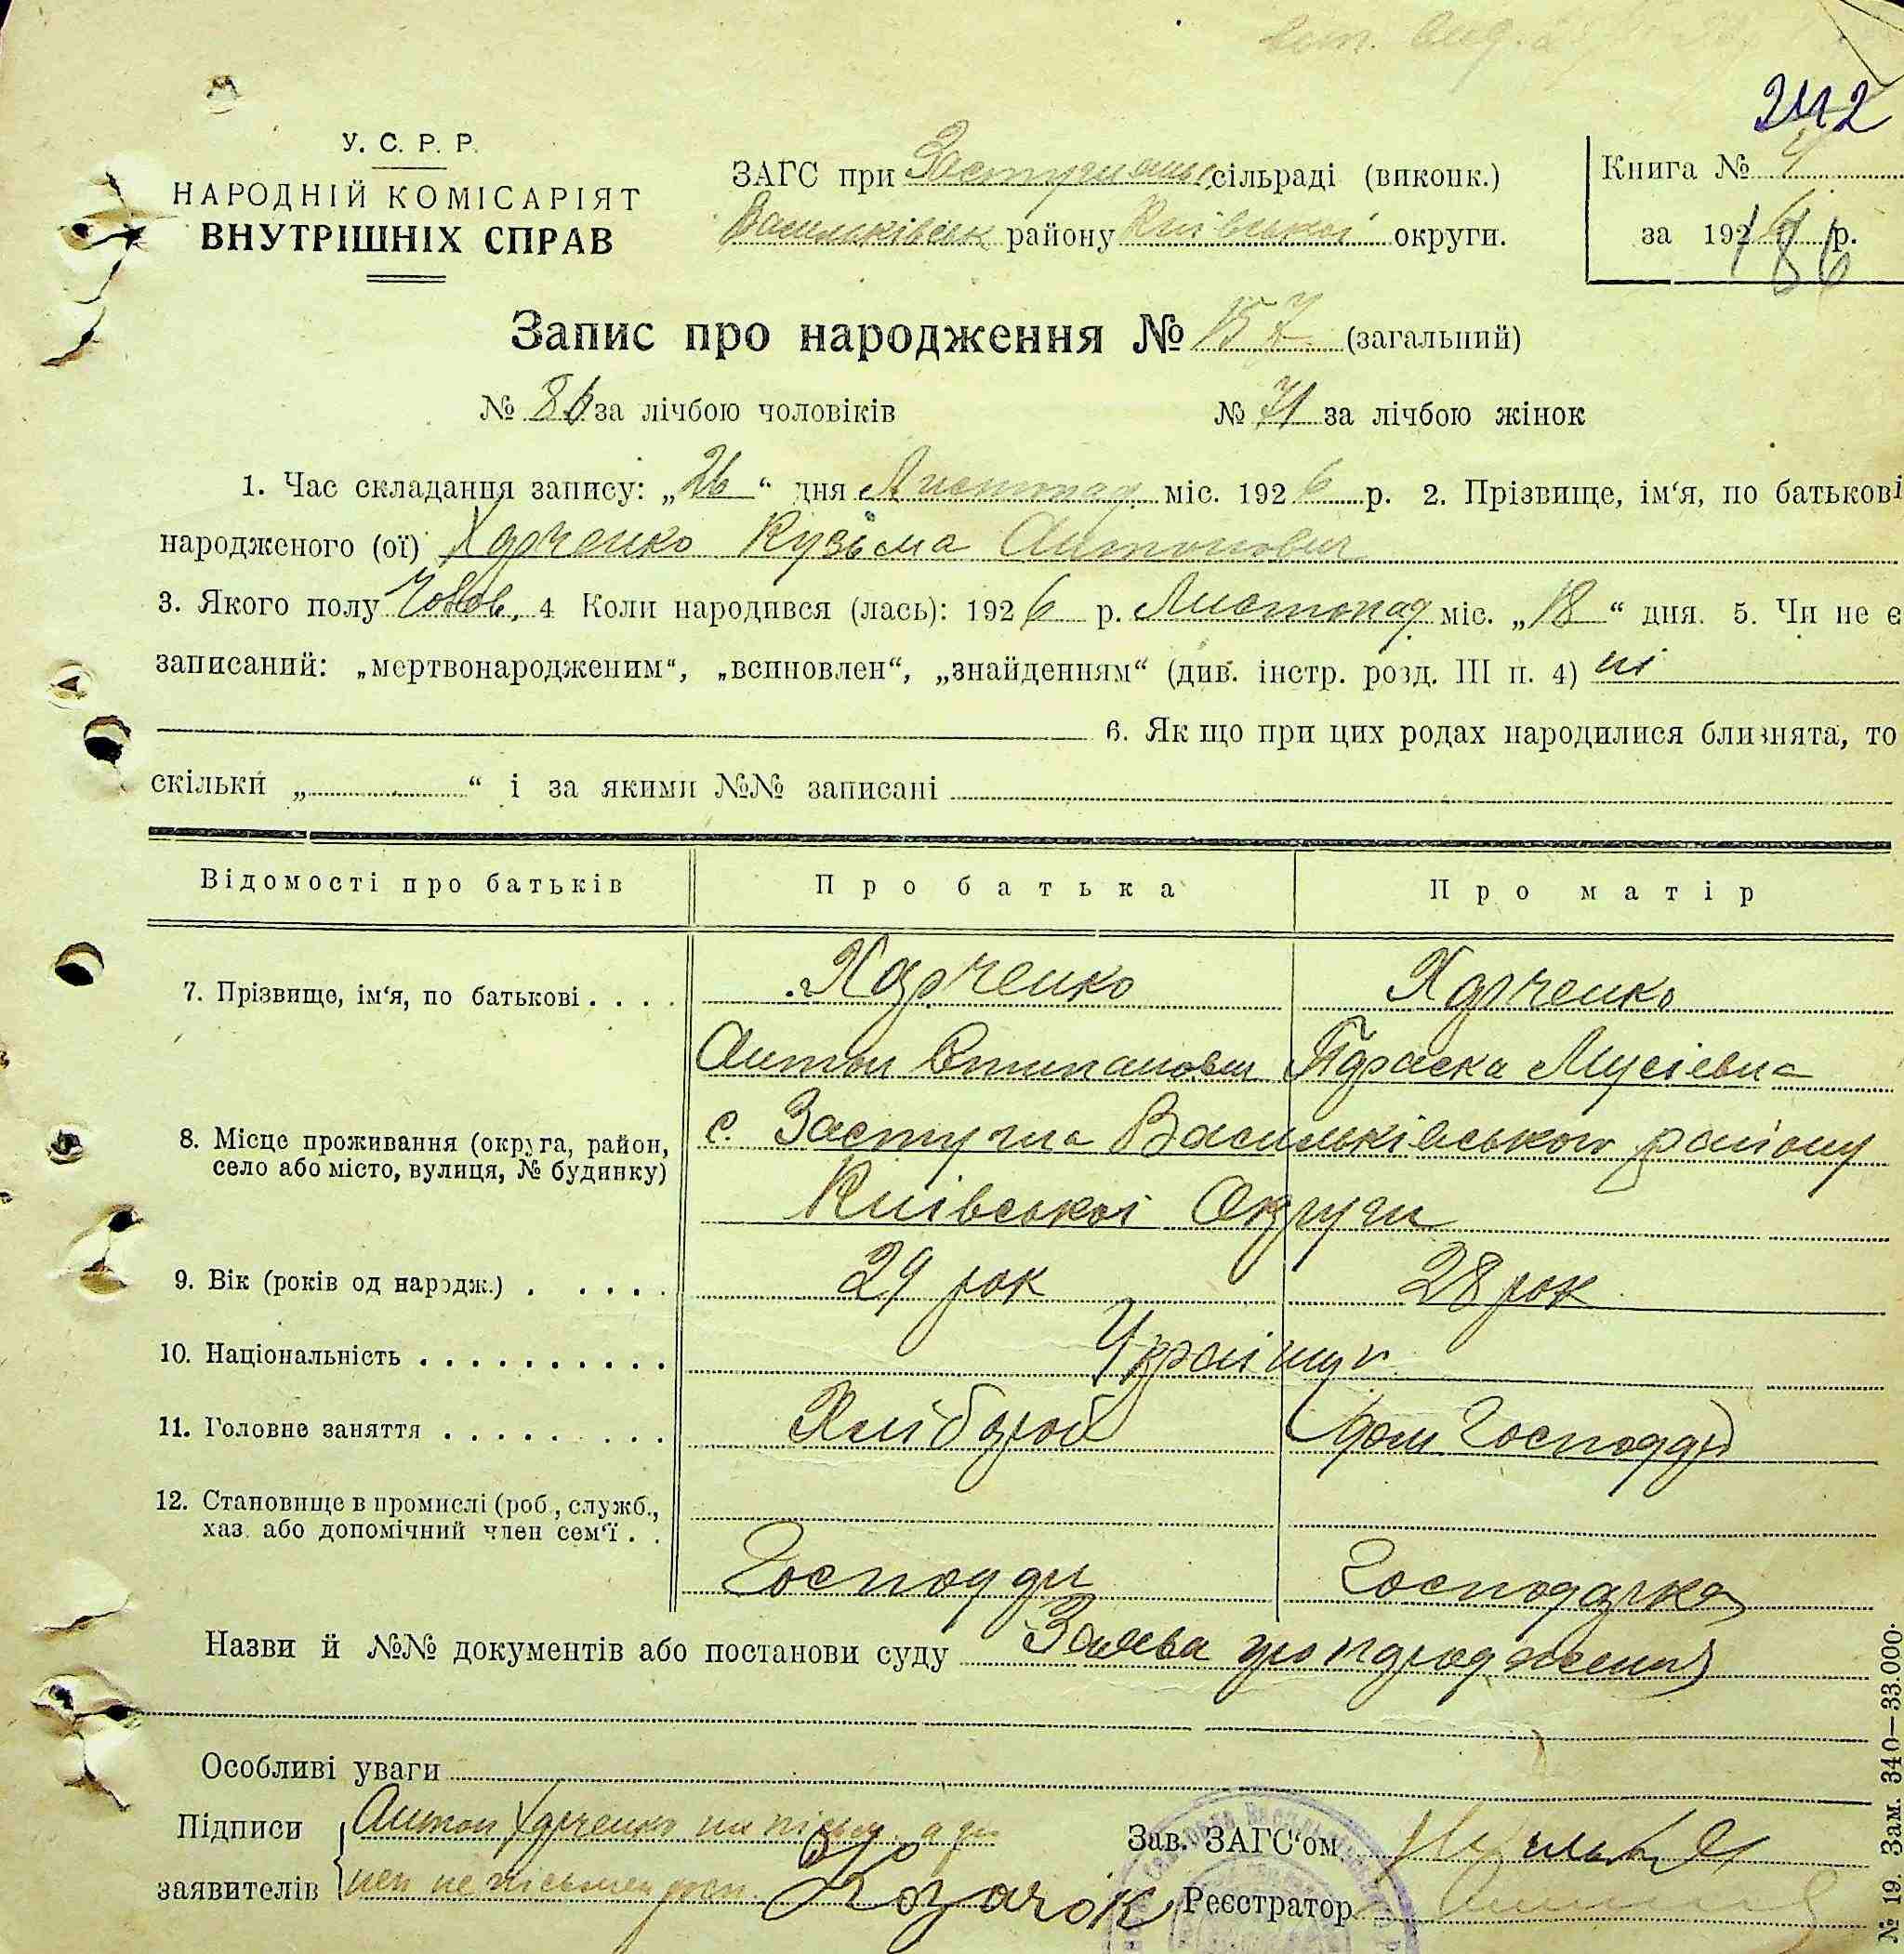 242
У. С. Р. Р.
НАРОДНІЙ КОМІСАРІЯТ
ВНУТРІШНІХ СПРАВ
ЗАГС при сільраді (виконк.)
Васильківськ району Київської округи.
Книга №
за 1926 р.
186
Запис про народження № 157 (загальний)
№ 86 за лічбою чоловіків № 71 за лічбою жінок
1. Час складання запису: „26“ дня Листопад міс. 1926 р. 2. Прізвище, ім‘я, по батькові
народженого (ої) Харченко Кузьма Антонович
3. Якого полу Чолов, 4 Коли народився (лась): 1926 р. Листопад міс. „18“ дня. 5. Чи не є
записаний: „мертвонародженим“, „всиновлен“, „знайденням“ (див. інстр. розд. III п. 4) ні
6. Як що при цих родах народилися близнята, то
скільки „ “ і за якими №№ записані
Відомості про батьків Про батька Про матір
7. Прізвище, ім‘я, по батькові . . . . Харченко Харченко
Антон Степанович Параска Мусіевна
8. Місце проживання (округа, район,
село або місто, вулиця, № будинку)
с. Застугна Васильківського району
Київської Округи
9. Вік (років од народж.) . . . . . 29 рок 28 рок
10. Національність . . . . . . . . . . Україн
11. Головне заняття . . . . . . . . . Хлібороб дом Господар
12. Становище в промислі (роб., служб.,
хаз. або допомічний член сем‘ї . .
Господар Господарка
Назви й №№ документів або постанови суду Заява про народження
Особливі уваги
Підписи
заявителів
Антон Харченко
Козачок
Зав. ЗАГС‘ом
Реєстратор
№ 19. Зам. 340—33.000.